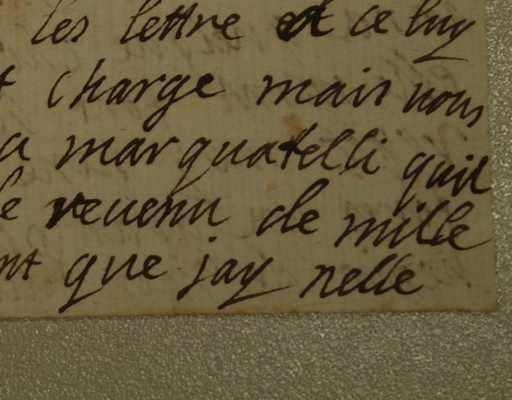 les lettre et ce luy
t charge mais nous
a marquatelli quil
le revenu de mille
nt que jay nelle